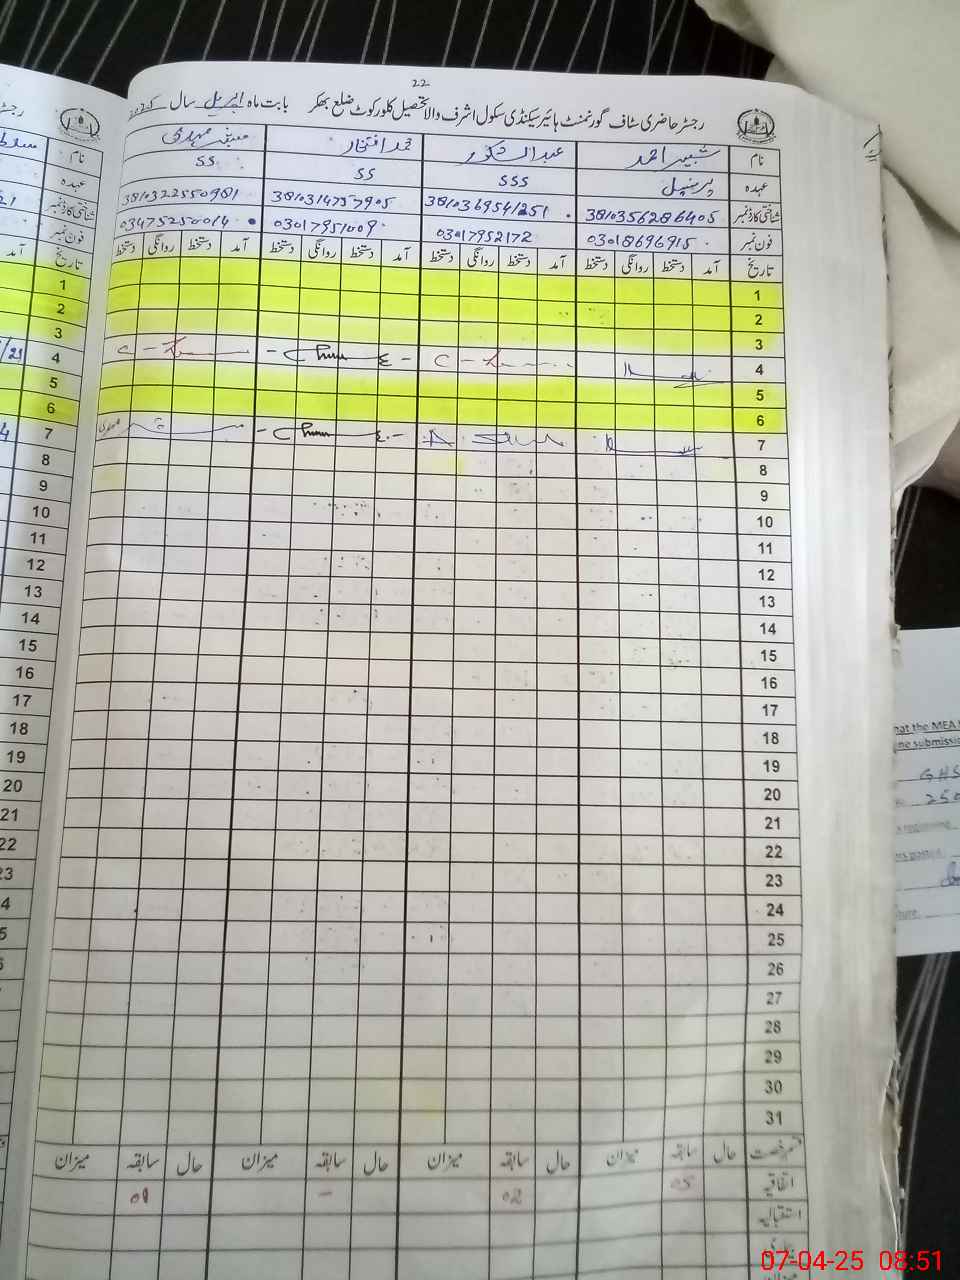 22
رجسٹر حاضری سٹاف گورنمنٹ ہائیر سیکنڈری سکول اشرف والا تحصیل کلورکوٹ ضلع بھکر بابت ماہ اپریل سال 2025
نام شبیر احمد عبدالشکور محمد افتخار مہدی
عہدہ پرنسپل SSS SS SS
شناختی کارڈ نمبر 3810356286405 3810369541251 3810314757905 3810322550981
فون نمبر 03018696915 03017952172 03017951009 03475250014
تاریخ آمد دستخط روانگی دستخط آمد دستخط روانگی دستخط آمد دستخط روانگی دستخط آمد دستخط روانگی دستخط
1
2
3
4 C - C -
5
6
7
8
9
10
11
12
13
14
15
16
17
18
19
20
21
22
23
24
25
26
27
28
29
30
31
قسم رخصت حال سابقہ میزان حال سابقہ میزان حال سابقہ میزان حال سابقہ میزان
اتفاقیہ 05 02 - 01
استقبالیہ
بیماری
رجسٹر
نام
عہدہ
شناختی کارڈ نمبر
فون نمبر
تاریخ
آمد
1
2
3
4
5
6
7
8
9
10
11
12
13
14
15
16
17
18
19
20
21
22
23
hat the MEA
ne submissio
GHS
250
ers posted
07-04-25 08:51